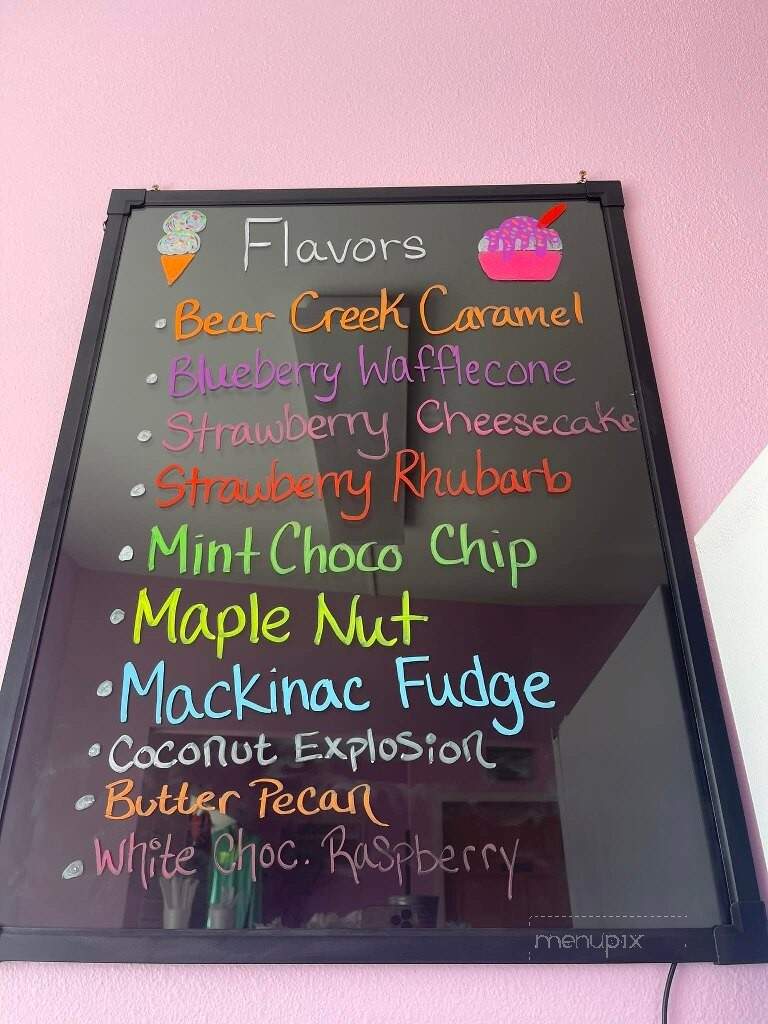 Flavors
Bear Creek Caramel
Blueberry Wafflecone
Strawberry Cheesecake
Strawberry Rhubarb
Mint Choco Chip
Maple Nut
Mackinac Fudge
Coconut Explosion
Butter Pecan
White Choc. Raspberry
menupix